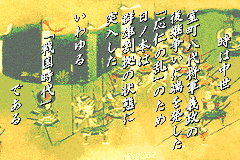 時は中世
室町八代将軍義政の
後継争いに端を発した
「応仁の乱」のため
日ノ本は
群雄割拠の状態に
突入した
いわゆる
「戦国時代」
である